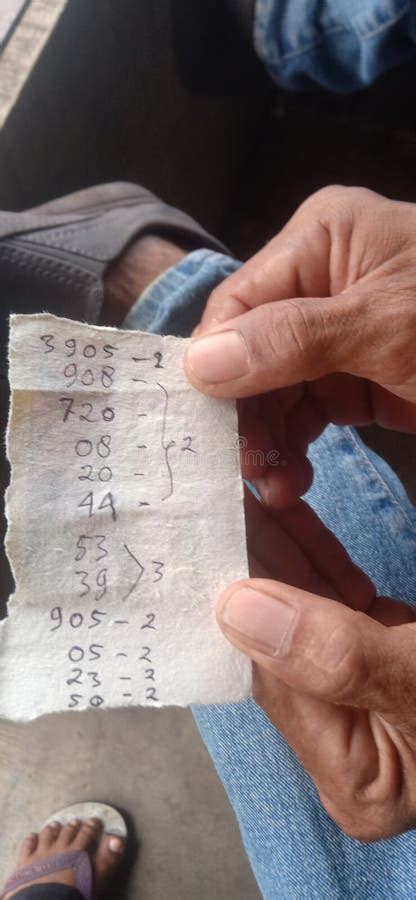 3905-2
908-
720-
08-
20-
44-
2
53
39
3
905-2
05-2
23-2
50-2
dreamstime